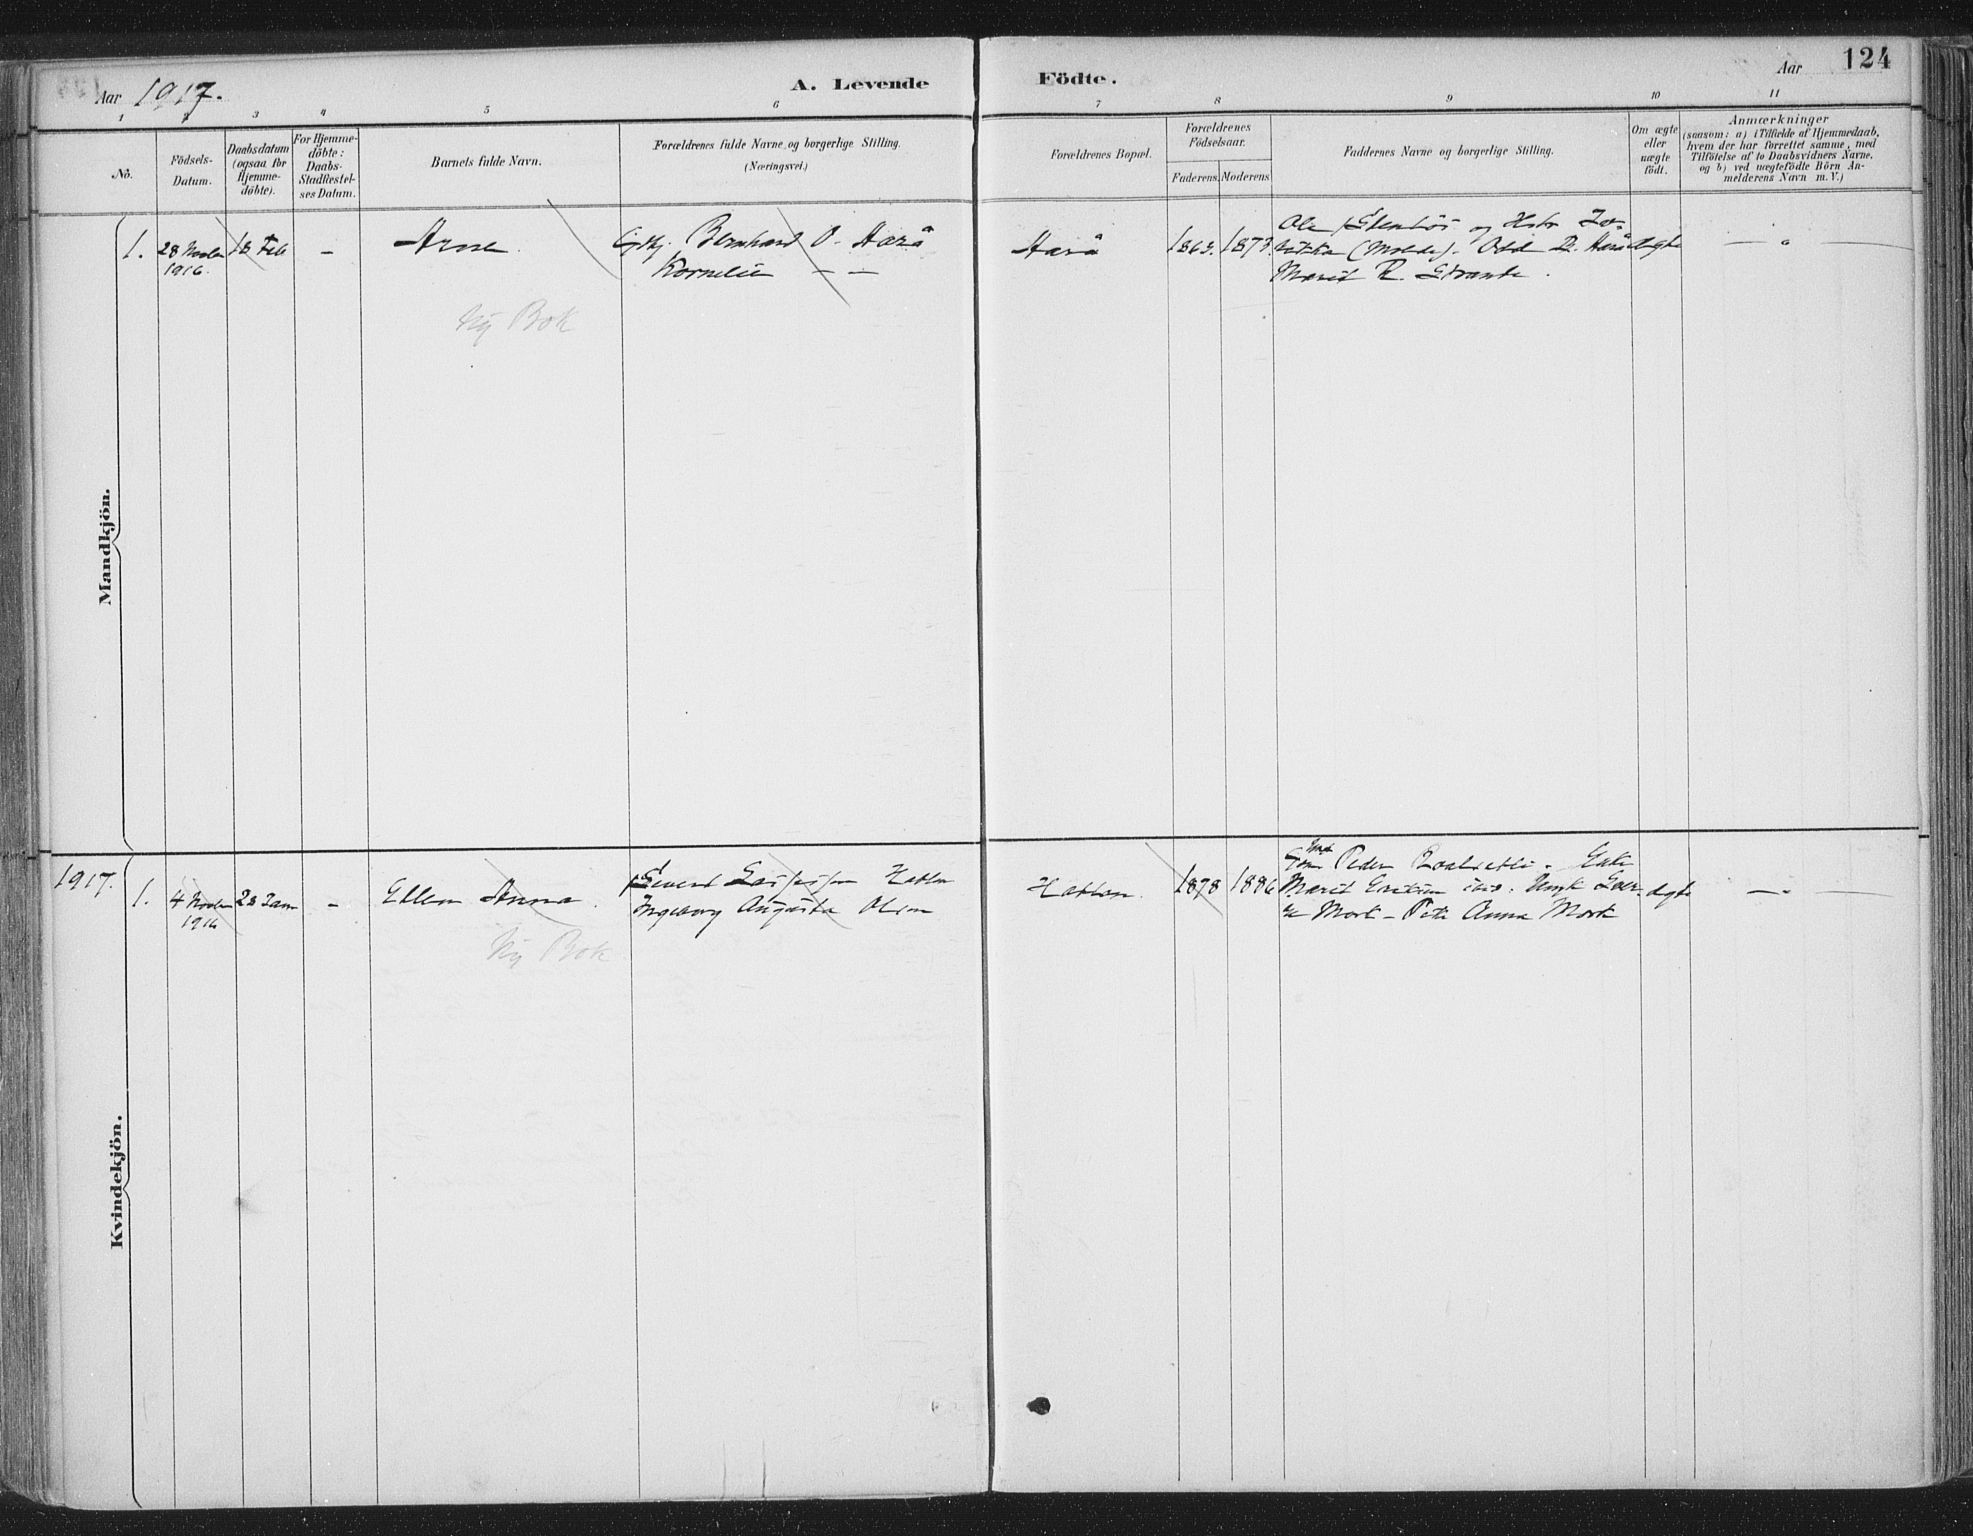 Aar 1917.
A. Levende
Födte.
Aar
124
1
2
3
4
5
6
7
8
9
10
11
No.
Födsels-
Datum.
Daabsdatum
(ogsaa for
Hjemme-
döbte).
For Hjemme-
döbte:
Daabs-
Stadfestel-
ses Datum.
Barnets fulde Navn.
Forældrenes fulde Navne og borgerlige Stilling.
(Næringsvei.)
Forældrenes Bopæl.
Forældrenes
Födselsaar.
Faderens.
Moderens.
Faddernes Navne og borgerlige Stilling.
Om ægte
eller
uægte
födt.
Anmærkninger
(saasom: a) i Tilfælde af Hjemmedaab,
hvem der har forrettet samme, med
Tilföielse af to Daabsvidners Navne,
og b) ved uægtefödte Börn An-
melderens Navn m. V.)
Mandkjön.
1.
28 Novbr
1916.
18 Feb
-
Arne
Gjkj. Bernhard O. Harå
Kornelie — —
Harå
1863.
1873.
Ole Stenhös og Hstr Lo-
vikka (Molde). Odd B. Harå
Marit R. Strande.
ægte
— " —
Ny Bok
Kvindekjön.
1917.
1.
4 Novbr
1916
28 Jan
-
Ellen Anna.
Sivert Hatlen
Ingeborg Augusta Olsen
Hatlen.
1878
1886
Peder
Marit ibid. Ungk
Mork - Pike Anna Mork
ægte
— " —
Ny Bok